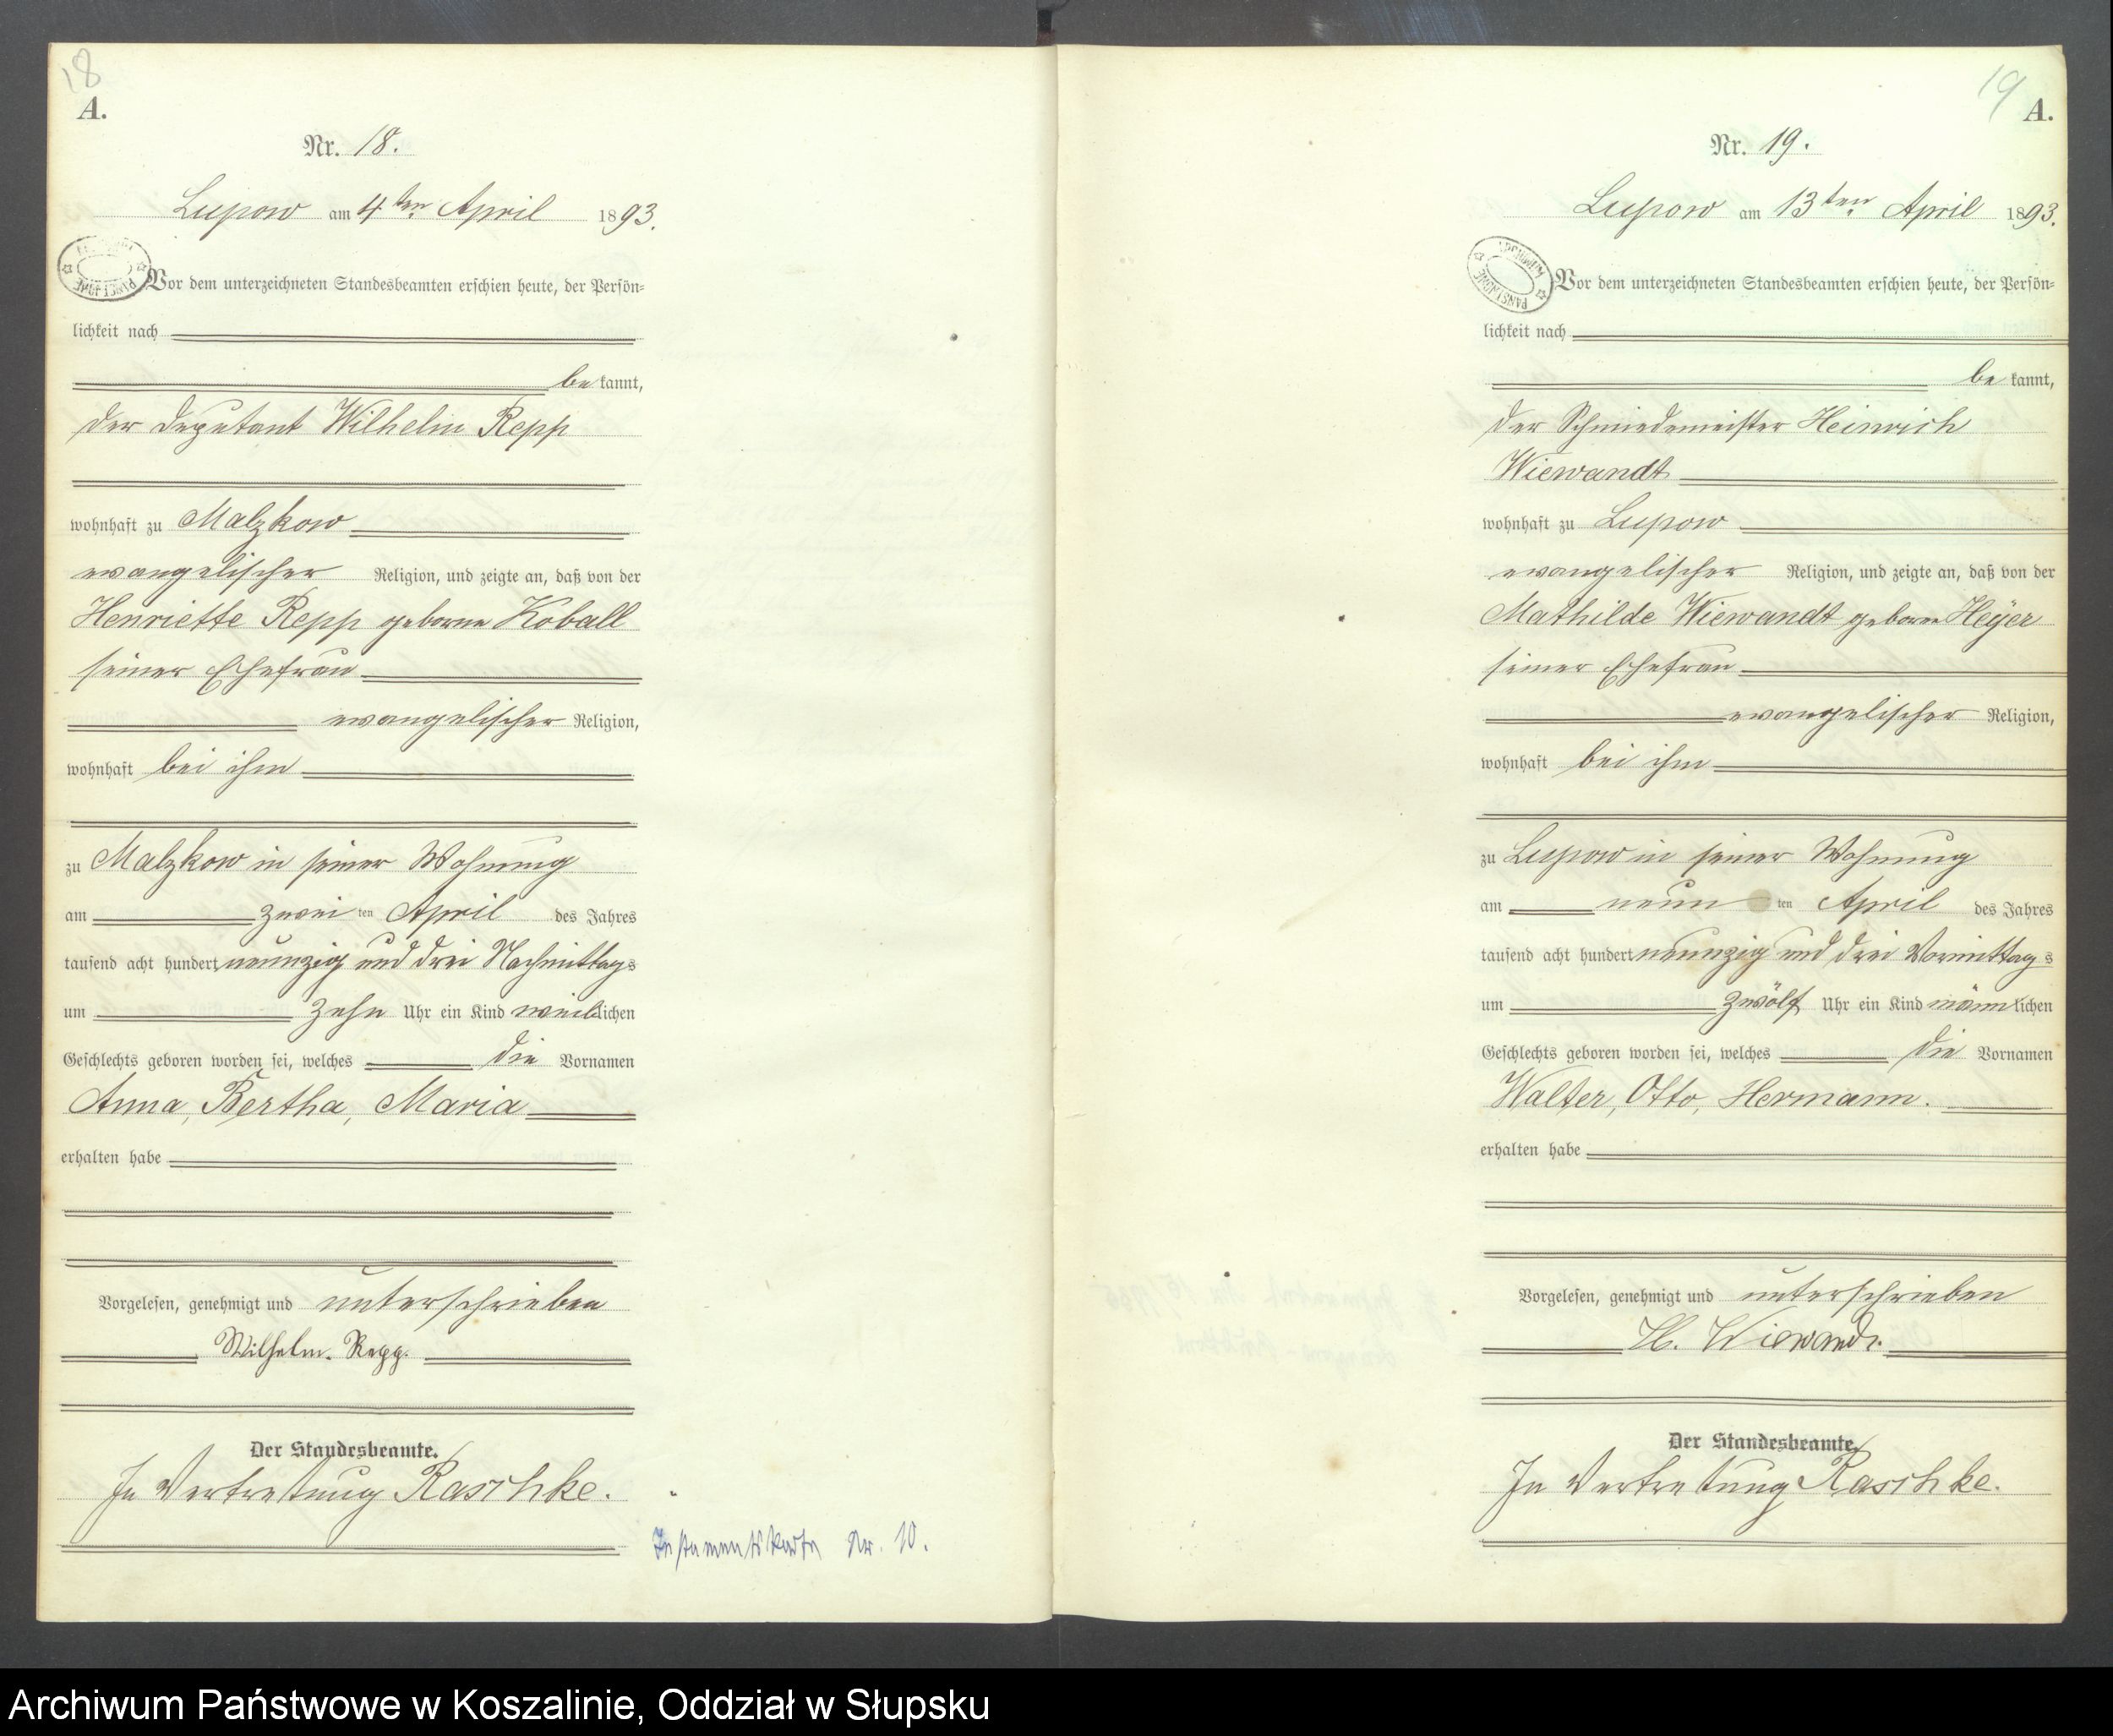 18
A.
Nr. 18.
Lupow am 4ten April 1893.
Vor dem unterzeichneten Standesbeamten erschien heute, der Persön=
lichkeit nach
be kannt,
der Deputant Wilhelm Repp
wohnhaft zu Malzkow
evangelischer Religion, und zeigte an, daß von der
Henriette Repp geborne Koball
seiner Ehefrau
evangelischer Religion,
wohnhaft bei ihm
zu Malzkow in seiner Wohnung
am zwei ten April des Jahres
tausend acht hundert neunzig und drei Nachmittags
um zehn Uhr ein Kind weiblichen
Geschlechts geboren worden sei, welches die Vornamen
Anna, Bertha, Maria
erhalten habe
Vorgelesen, genehmigt und unterschrieben
Wilhelm. Repp.
Der Standesbeamte.
In Vertretung Raschke.
Nr. 10.
19
A.
Nr. 19.
Lupow am 13ten April 1893.
Vor dem unterzeichneten Standesbeamten erschien heute, der Persön=
lichkeit nach
be kannt,
der Schmiedemeister Heinrich
Wiewandt
wohnhaft zu Lupow
evangelischer Religion, und zeigte an, daß von der
Mathilde Wiewandt geborne Heÿer
seiner Ehefrau
evangelischer Religion,
wohnhaft bei ihm
zu Lupow in seiner Wohnung
am neun ten April des Jahres
tausend acht hundert neunzig und drei Vormittags
um zwölf Uhr ein Kind männlichen
Geschlechts geboren worden sei, welches die Vornamen
Walter, Otto, Hermann.
erhalten habe
Vorgelesen, genehmigt und unterschrieben
H. Wiewandt.
Der Standesbeamte.
In Vertretung Raschke.
Archiwum Państwowe w Koszalinie, Oddział w Słupsku